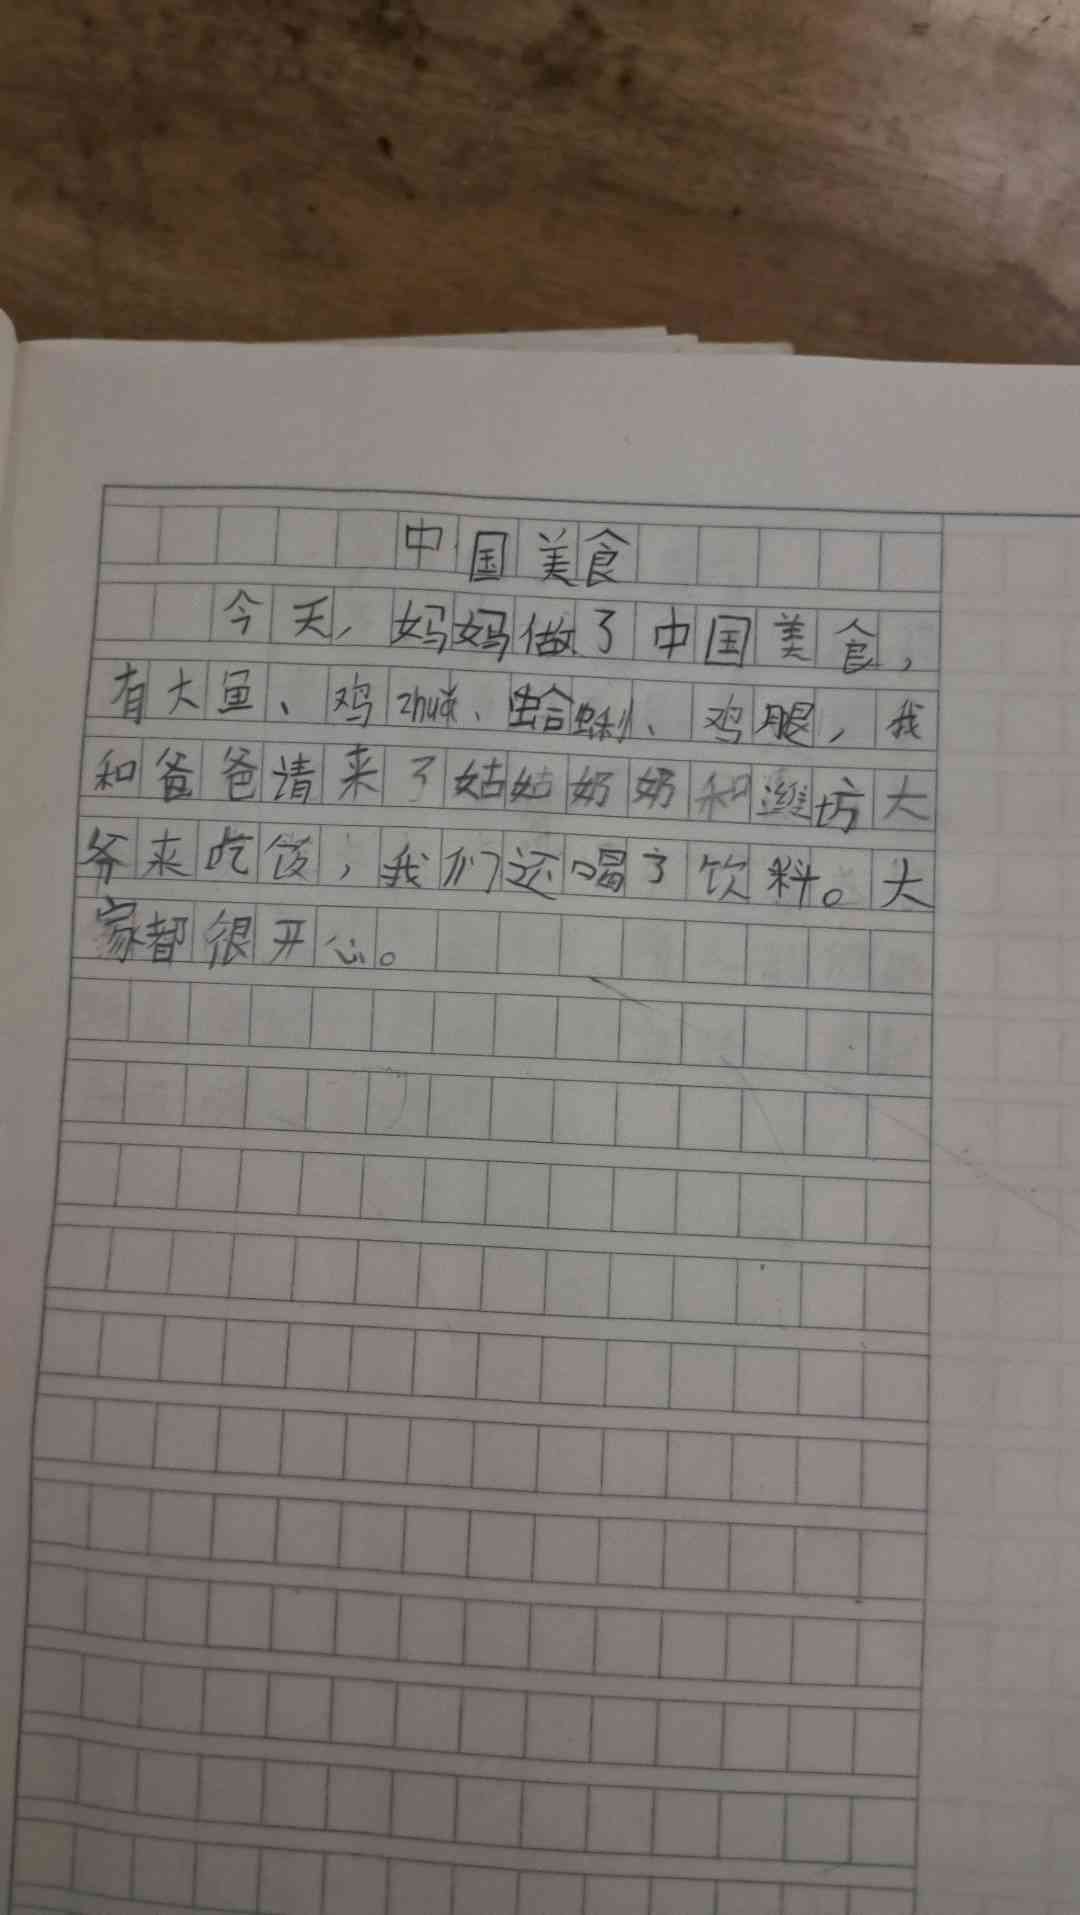 中国美食
今天，妈妈做了中国美食，
有大鱼、鸡zhuǎ、蛤蜊、鸡腿，我
和爸爸请来了姑姑奶奶和潍坊大
爷来吃饭，我们还喝了饮料。大
家都很开心。